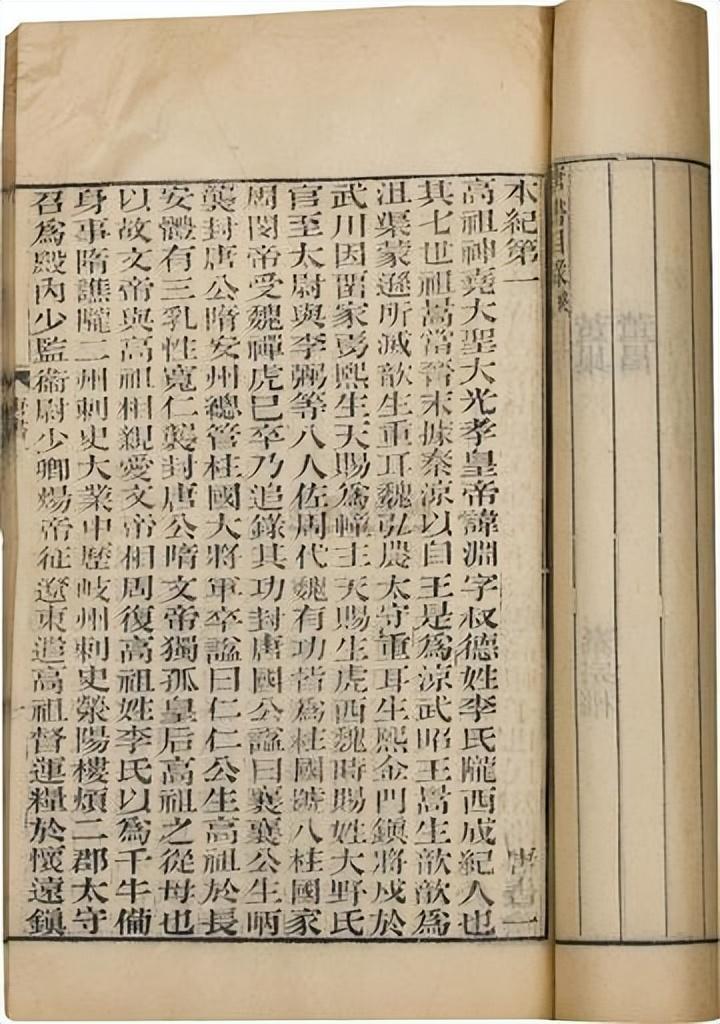 本紀第一
高祖神堯大聖大光孝皇帝諱淵字叔德姓李氏隴西成紀人也
其七世祖暠當晉末據秦涼以自王是爲涼武昭王暠生歆歆爲
沮渠蒙遜所滅歆生重耳魏弘農太守重耳生熙金門鎮將戍於
武川因畱家焉熙生天賜爲幢主天賜生虎西魏時賜姓大野氏
官至太尉與李弼等八人佐周代魏有功皆爲柱國號八柱國家
周閔帝受魏禪虎已卒乃追錄其功封唐國公諡曰襄襄公生昞
襲封唐公隋安州總管柱國大將軍卒諡曰仁仁公生高祖於長
安體有三乳性寬仁襲封唐公隋文帝獨孤皇后高祖之從母也
以故文帝與高祖相親愛文帝相周復高祖姓李氏以爲千牛備
身事隋譙隴二州刺史大業中歷岐州刺史滎陽樓煩二郡太守
召爲殿內少監衞尉少卿煬帝征遼東遣高祖督運糧於懷遠鎮